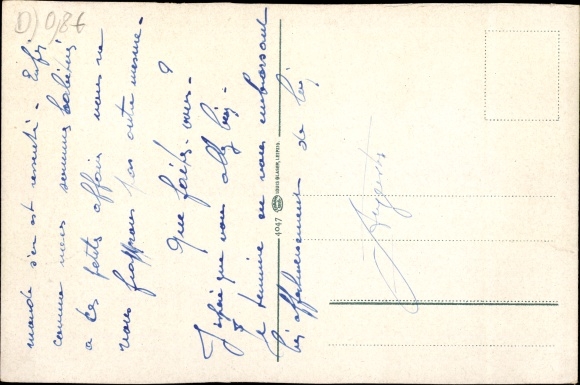 mande s'en est ressenti - Enfin
comme nous sommes
a ces petits affairs nous ne
nous frappons pas outre mesure -
Que faites-vous ?
J'espère que vous allez bien -
Je termine en vous embrassant
bien affectueusement de loin
D) 0,86
4047
HANS BLASER, LEIPZIG